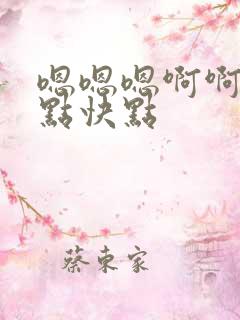 嗯嗯嗯啊啊
點快點
蔡東家